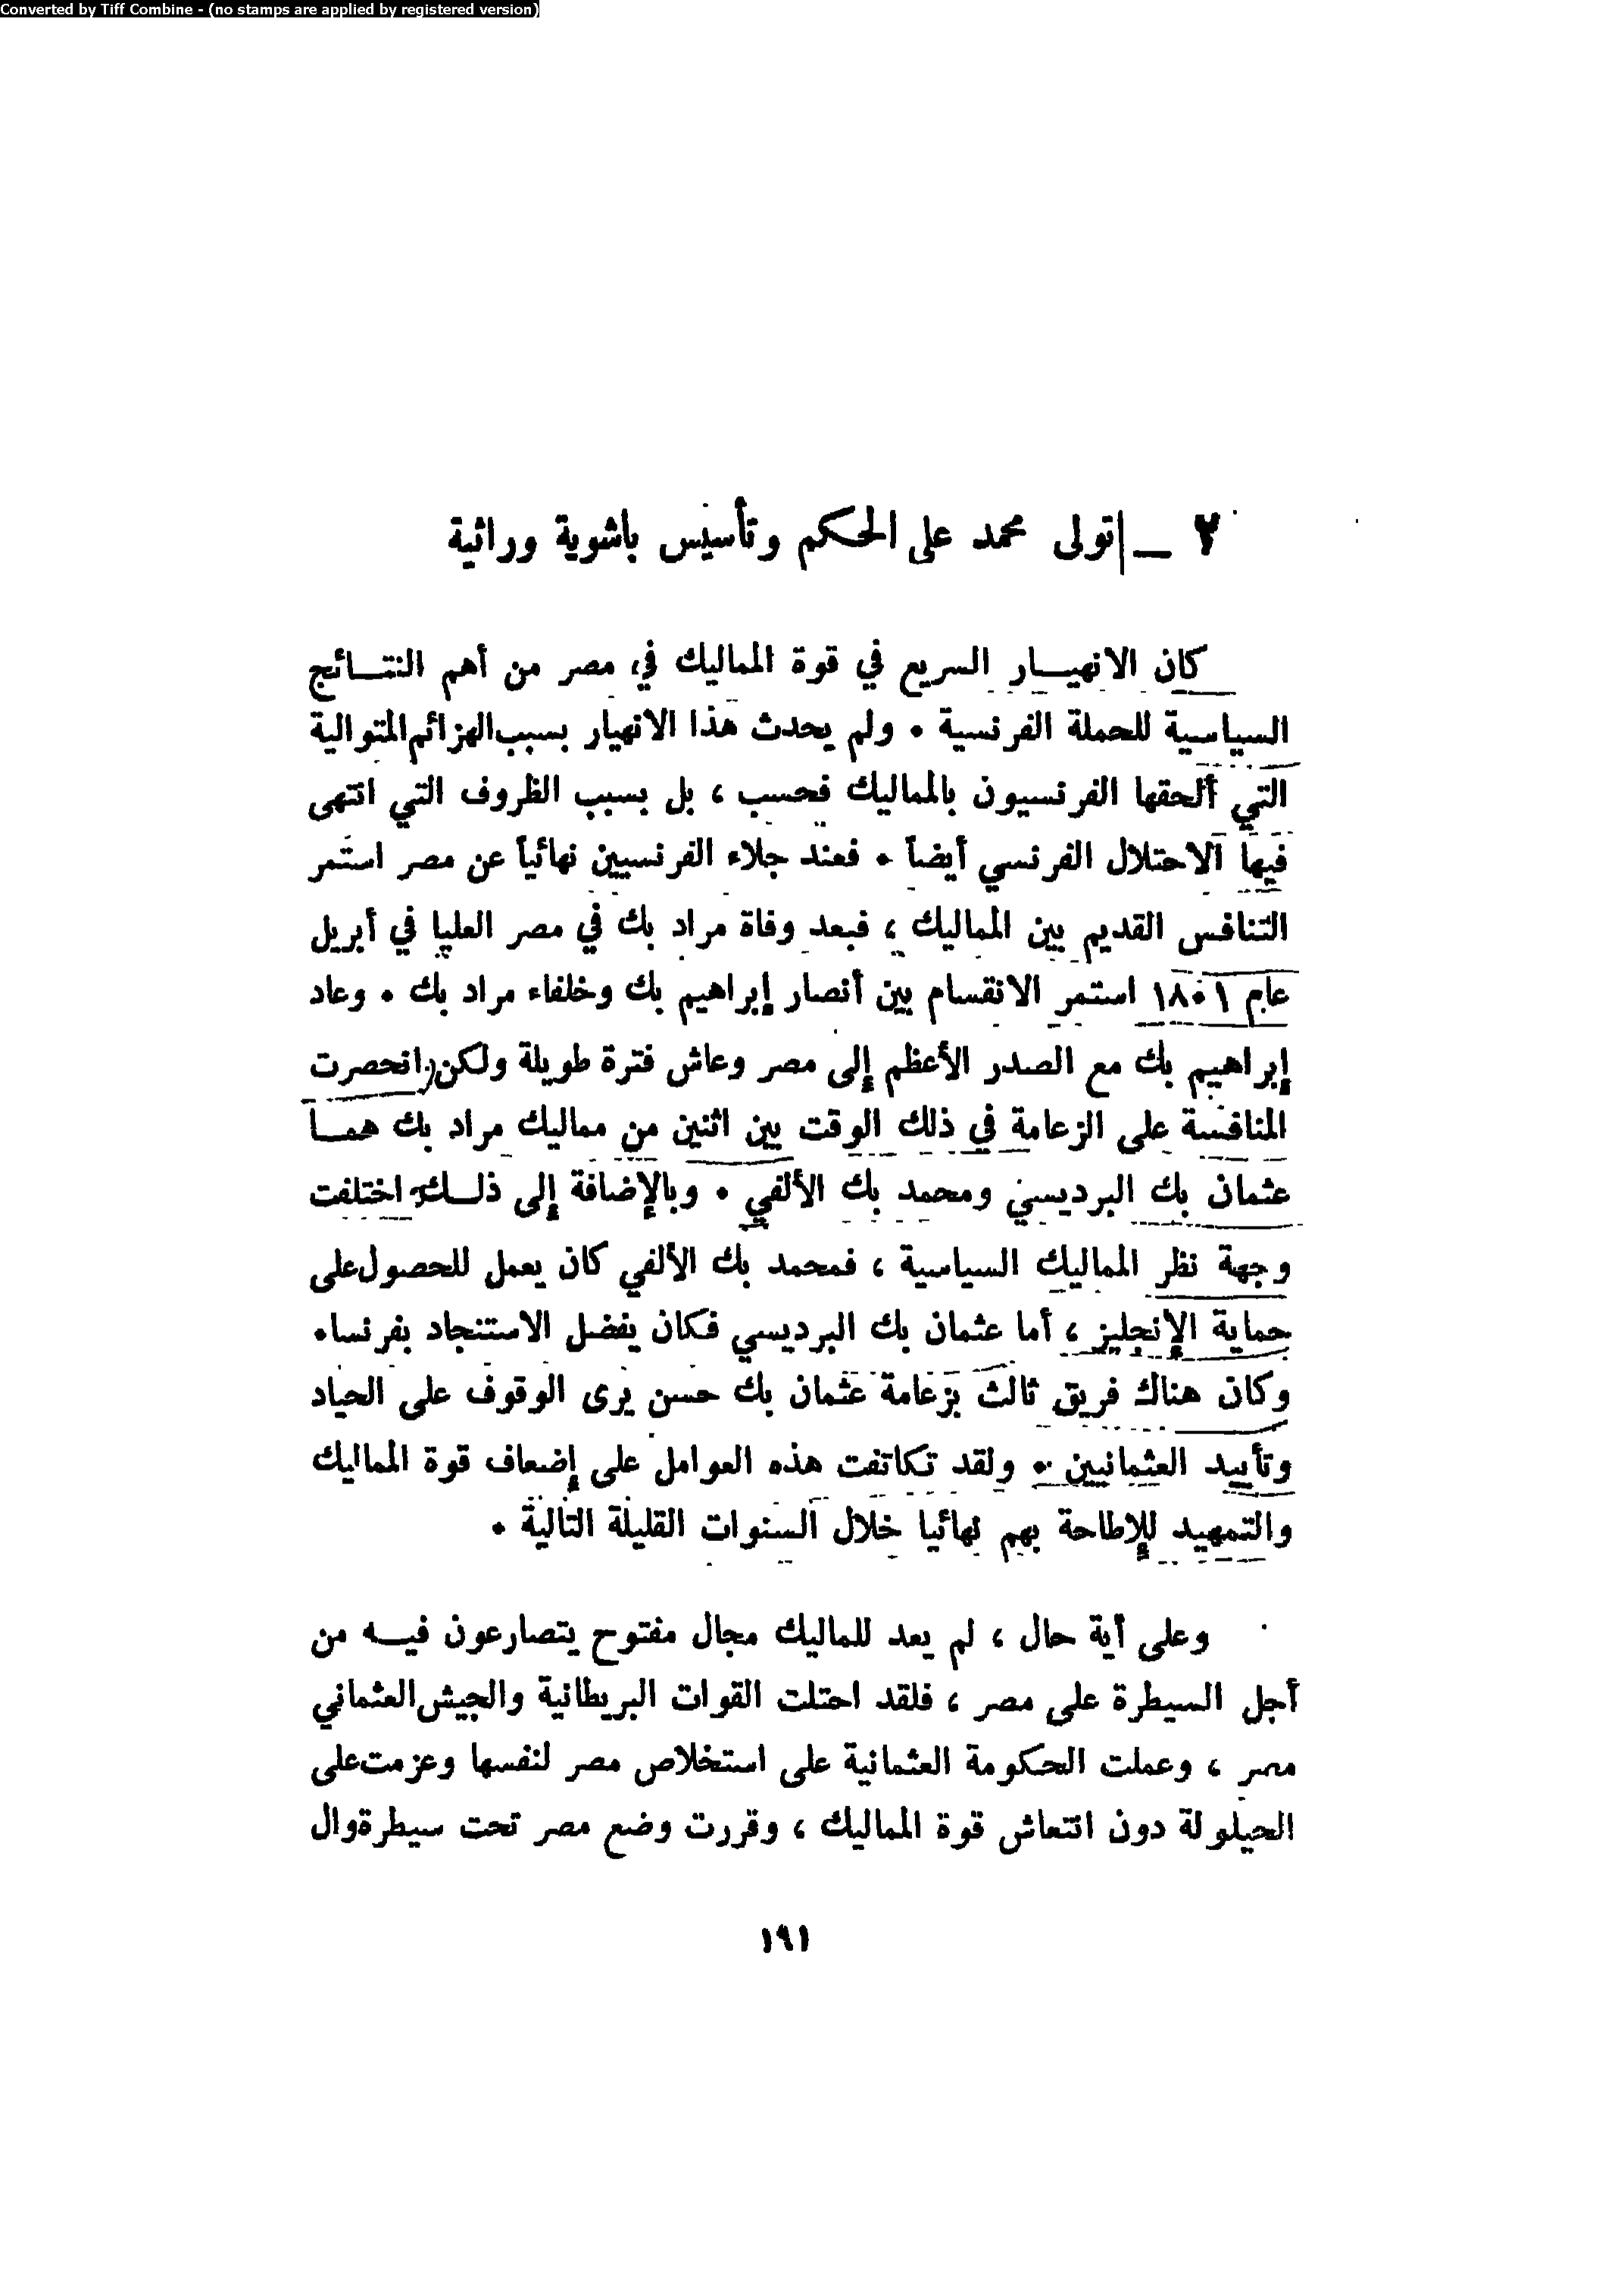 Converted by Tiff Combine - (no stamps are applied by registered version)
٢ — تولى محمد على الحكم وتأسيس باشوية وراثية
كان الانهيـــار السريع في قوة المماليك في مصر من أهم النتـــائج
السياسية للحملة الفرنسية . ولم يحدث هذا الانهيار بسبب الهزائم المتوالية
التي ألحقها الفرنسيون بالمماليك فحسب ، بل بسبب الظروف التي انتهى
فيها الاحتلال الفرنسي أيضاً . فعند جلاء الفرنسيين نهائياً عن مصر استمر
التنافس القديم بين المماليك ، فبعد وفاة مراد بك في مصر العليا في أبريل
عام ١٨٠١ استمر الانقسام بين أنصار إبراهيم بك وخلفاء مراد بك . وعاد
إبراهيم بك مع الصدر الأعظم إلى مصر وعاش فترة طويلة ولكن انحصرت
المنافسة على الزعامة في ذلك الوقت بين اثنين من مماليك مراد بك همــا
عثمان بك البرديسي ومحمد بك الألفي . وبالإضافة إلى ذلــك اختلفت
وجهة نظر المماليك السياسية ، فمحمد بك الألفي كان يعمل للحصول على
حماية الإنجليز ، أما عثمان بك البرديسي فكان يفضل الاستنجاد بفرنسا.
وكان هناك فريق ثالث بزعامة عثمان بك حسن يرى الوقوف على الحياد
وتأييد العثمانيين . ولقد تكاتفت هذه العوامل على إضعاف قوة المماليك
والتمهيد للإطاحة بهم نهائيا خلال السنوات القليلة التالية .
وعلى أية حال ، لم يعد للماليك مجال مفتوح يتصارعون فيــه من
أجل السيطرة على مصر ، فلقد احتلت القوات البريطانية والجيش العثماني
مصر ، وعملت الحكومة العثمانية على استخلاص مصر لنفسها وعزمت على
الحيلولة دون انتعاش قوة المماليك ، وقررت وضع مصر تحت سيطرة وال
١٩١